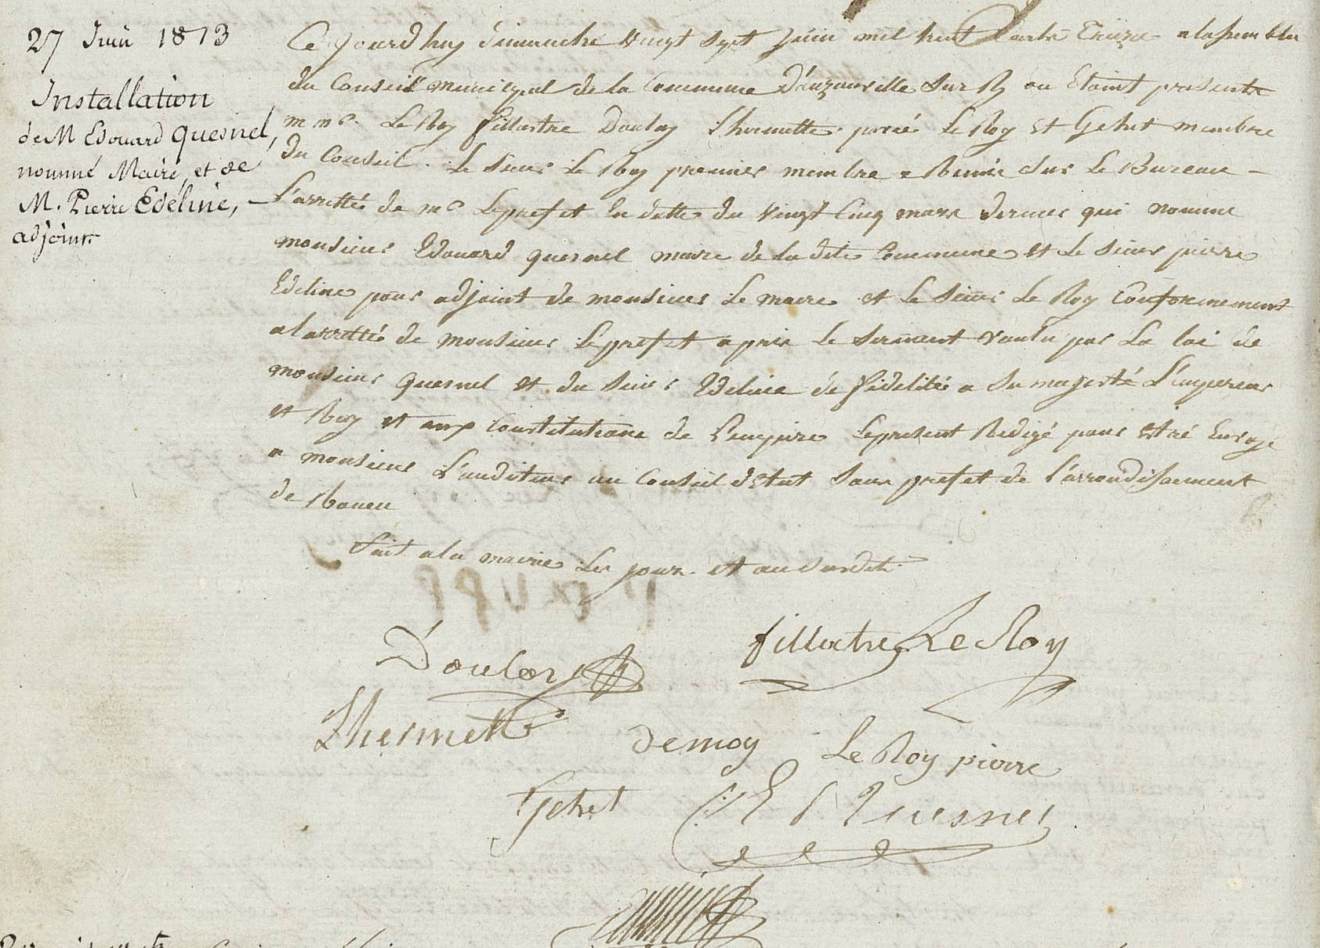 27 Juin 1813
Installation
de M Edouard Quesnel,
nommé Maire, et de
M. Pierre Edeline,
adjoint
Ce jourdhuy dimanche vingt sept juin mil huit cents treize alasemblée
du Conseil municipal de la Commune Dauzouville sur Ry ou Etoint présents
m mrs. LeRoy fillastre Doulay Lhermette pierre LeRoy et Gehet membre
du Conseil. Le sieur Le Roy premier membre a Remis sur Le Bureau
L'arretté de mr Leprefet En datte du vingt cinq mars dernier qui nomme
monsieur Edouard quesnel maire de la dite Commune et Le sieur pierre
Edeline pour adjoint de monsieur Le maire et Le sieur Le Roy Conformement
alarretté de monsieur Leprefet a pris le serment voulu par La loi de
monsieur quesnel et du sieur Edeline de fidelitée a Sa majesté L'empereur
et Roy et aux Constitutions de L'empire Lepresent Redigé pour Etre Envoye
a monsieur L'auditeur au Conseil d'Etat Sous prefet de l'arrondisement
de Rouen
fait ala mairie Les jour et an Susdit
Doulay fillatre LeRoy
Lhermette demoy Le Roy pierre
Gehet E Quesnel